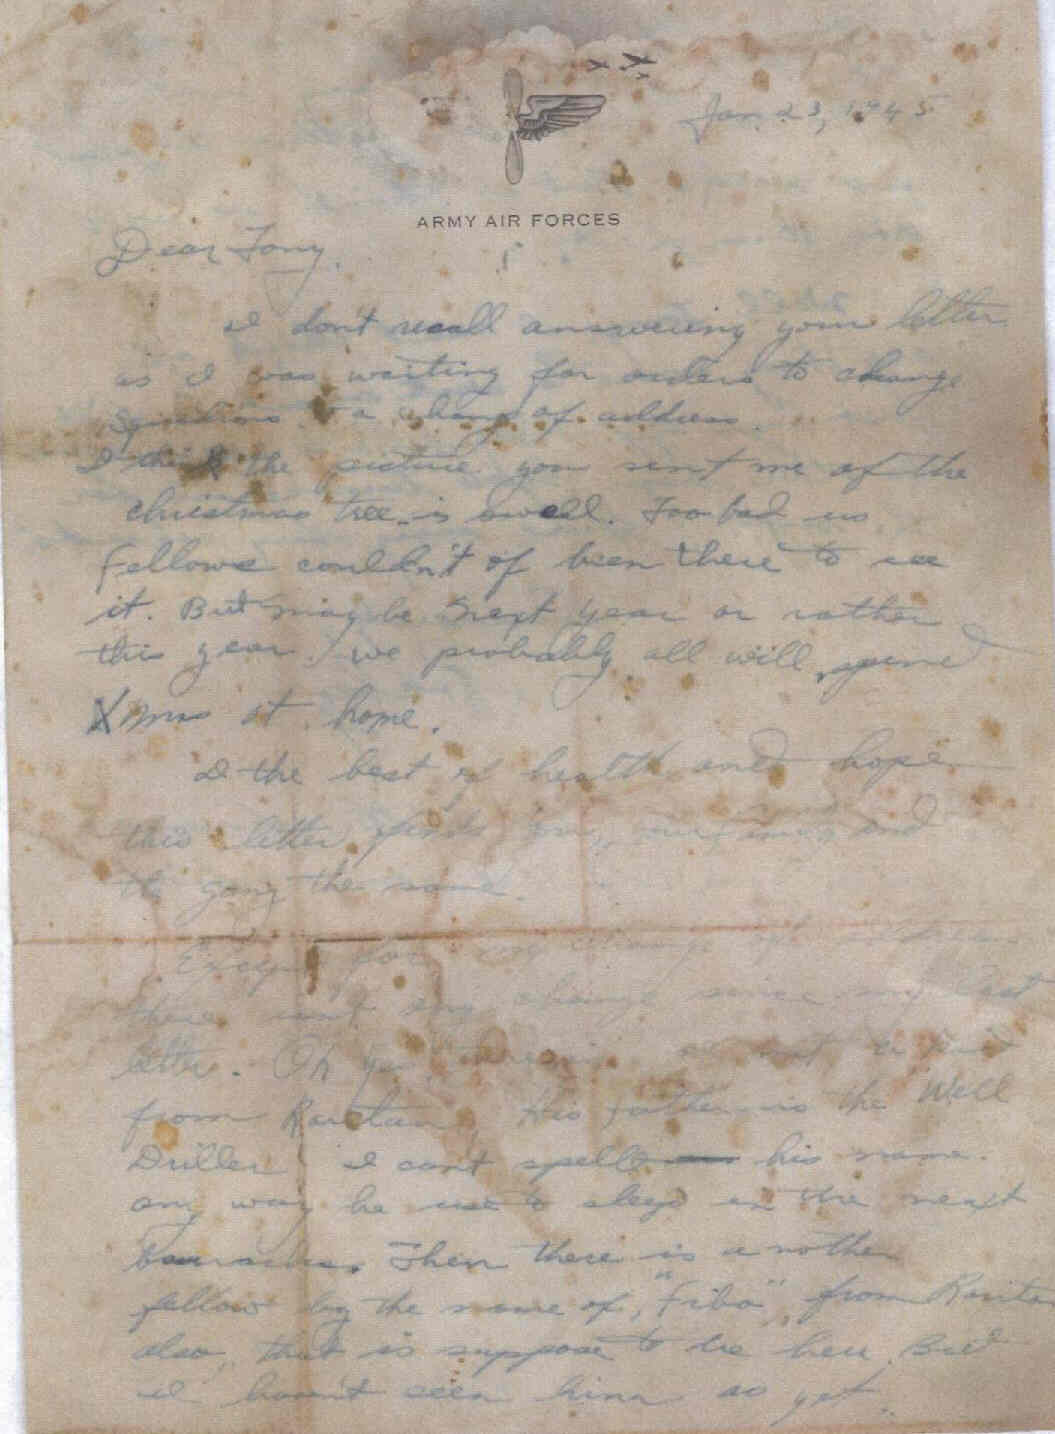 Jan 23, 1945
ARMY AIR FORCES
Dear Tony,
I don't recall answering your letter
as I was waiting for orders to change
Squadrons to a change of address.
I think the picture you sent me of the
christmas tree is swell. Too bad us
fellows couldn't of been there to see
it. But may be next year or rather
this year we probably all will spend
Xmas at home.
I the best of health and hope
this letter finds you, and
the gang the same.
Except for my change of address
there isn't any change since my last
letter. Oh yes, there is
from Raritan. His father is the Well
Driller I can't spell his name.
any way he use to sleep in the next
barracks. Then there is another
fellow by the name of, "Fibo", from Raritan
also, that is suppose to be here. But
I haven't seen him as yet.